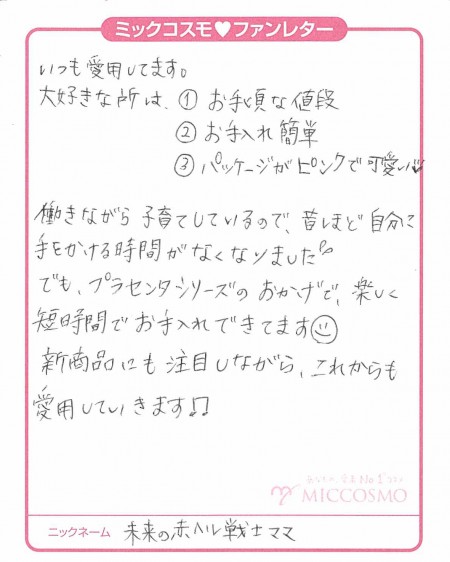 ミックコスモ♥ファンレター
いつも愛用してます。
大好きな所は、① お手頃な値段
② お手入れ簡単
③ パッケージがピンクで可愛い♥
働きながら子育てしているので、昔ほど自分に
手をかける時間がなくなりました
でも、プラセンタシリーズのおかげで、楽しく
短時間でお手入れできてます☺
新商品にも注目しながら、これからも
愛用していきます!!
MICCOSMO
ニックネーム 未来の赤ヘル戦士ママ